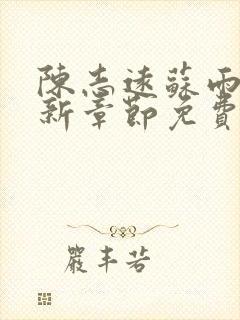 陳志遠蘇雨
新章節免費
嚴丰若